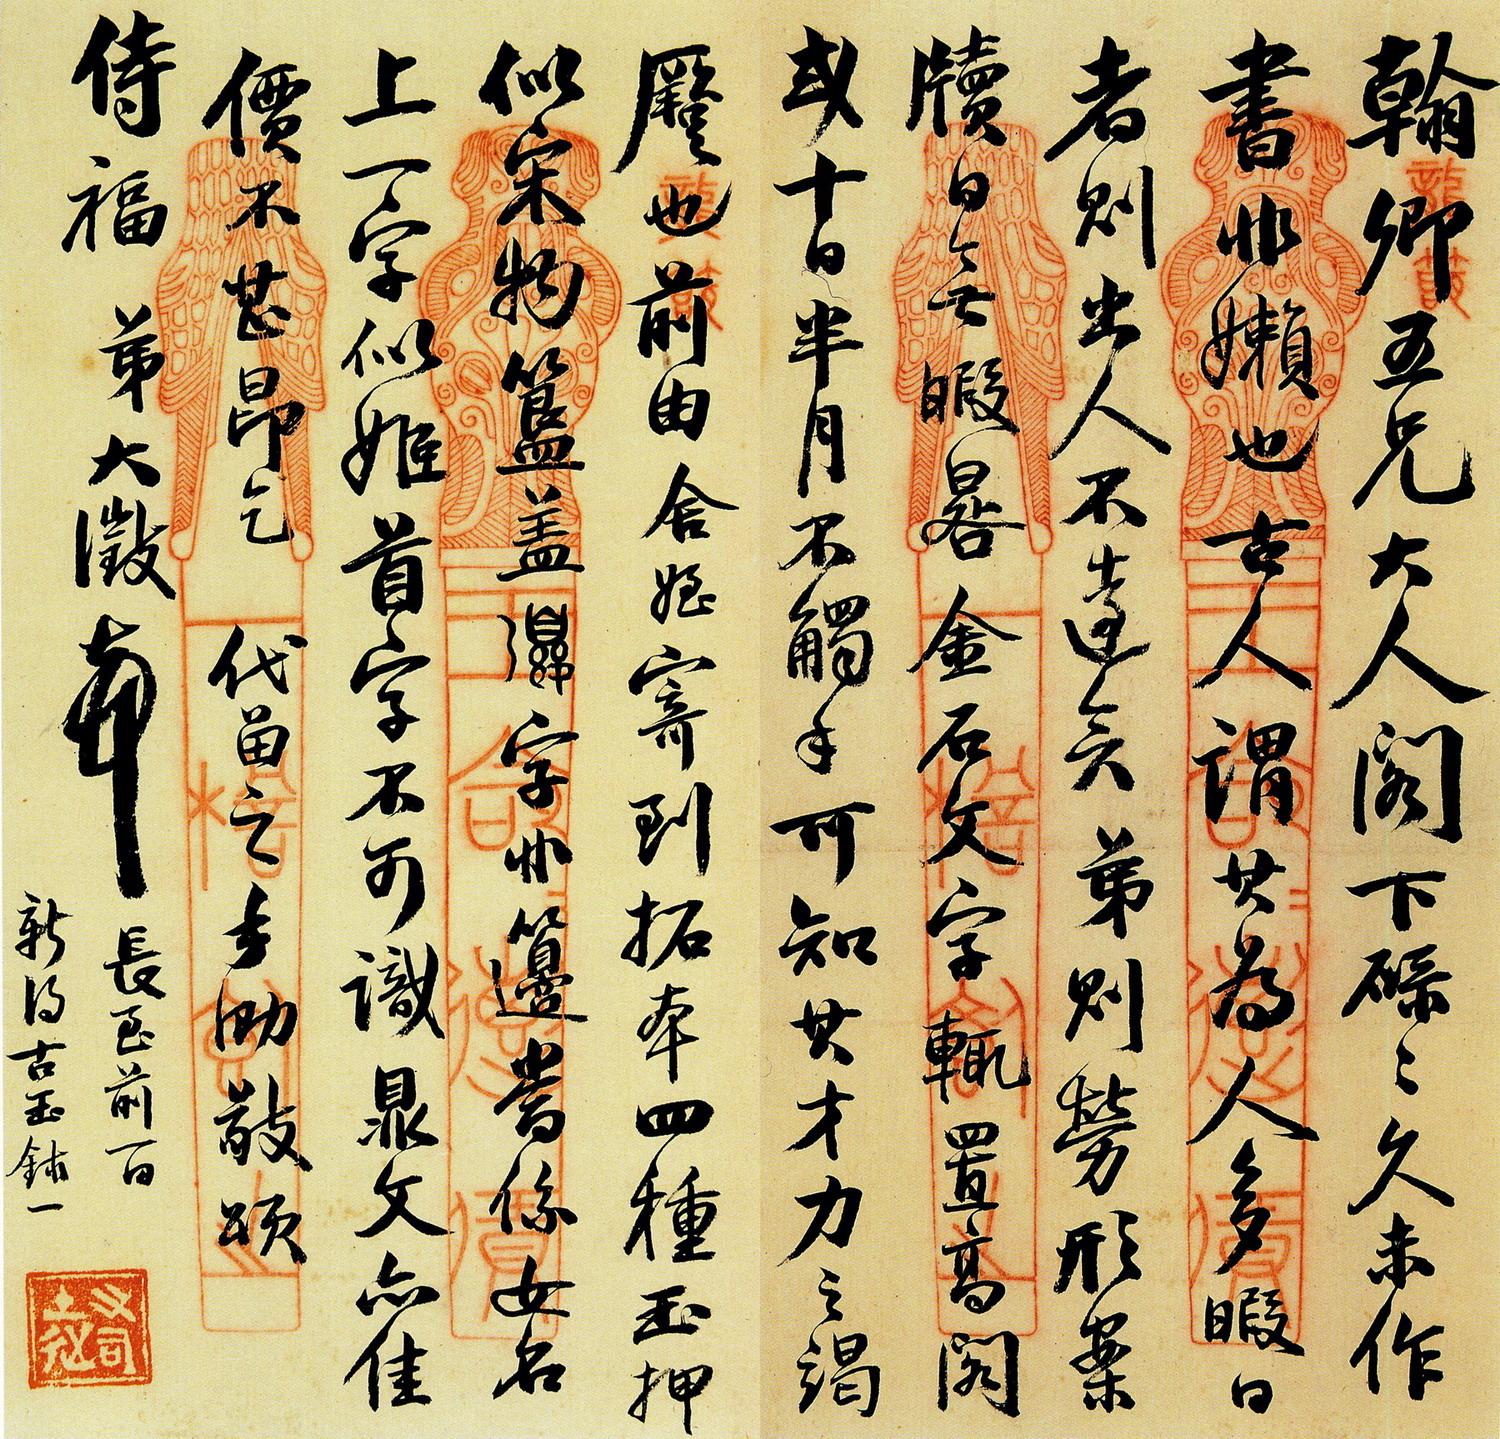 翰卿五兄大人阁下磎〻久未作
書非嬾也古人謂其為人多暇日
者則出人不遠矣弟則勞形案
牘日無暇晷金石文字輒置高阁
或十日半月不觸手可知其才力之竭
蹷也前由舍姪寄到拓本四種玉押
似宋物簠盖字非簋當係女名
上一字似姬首字不可識鼎文亦佳
價不甚昂乞代留之手泐敬頌
侍福弟大澂
長至前一日
新得古玉鉢一